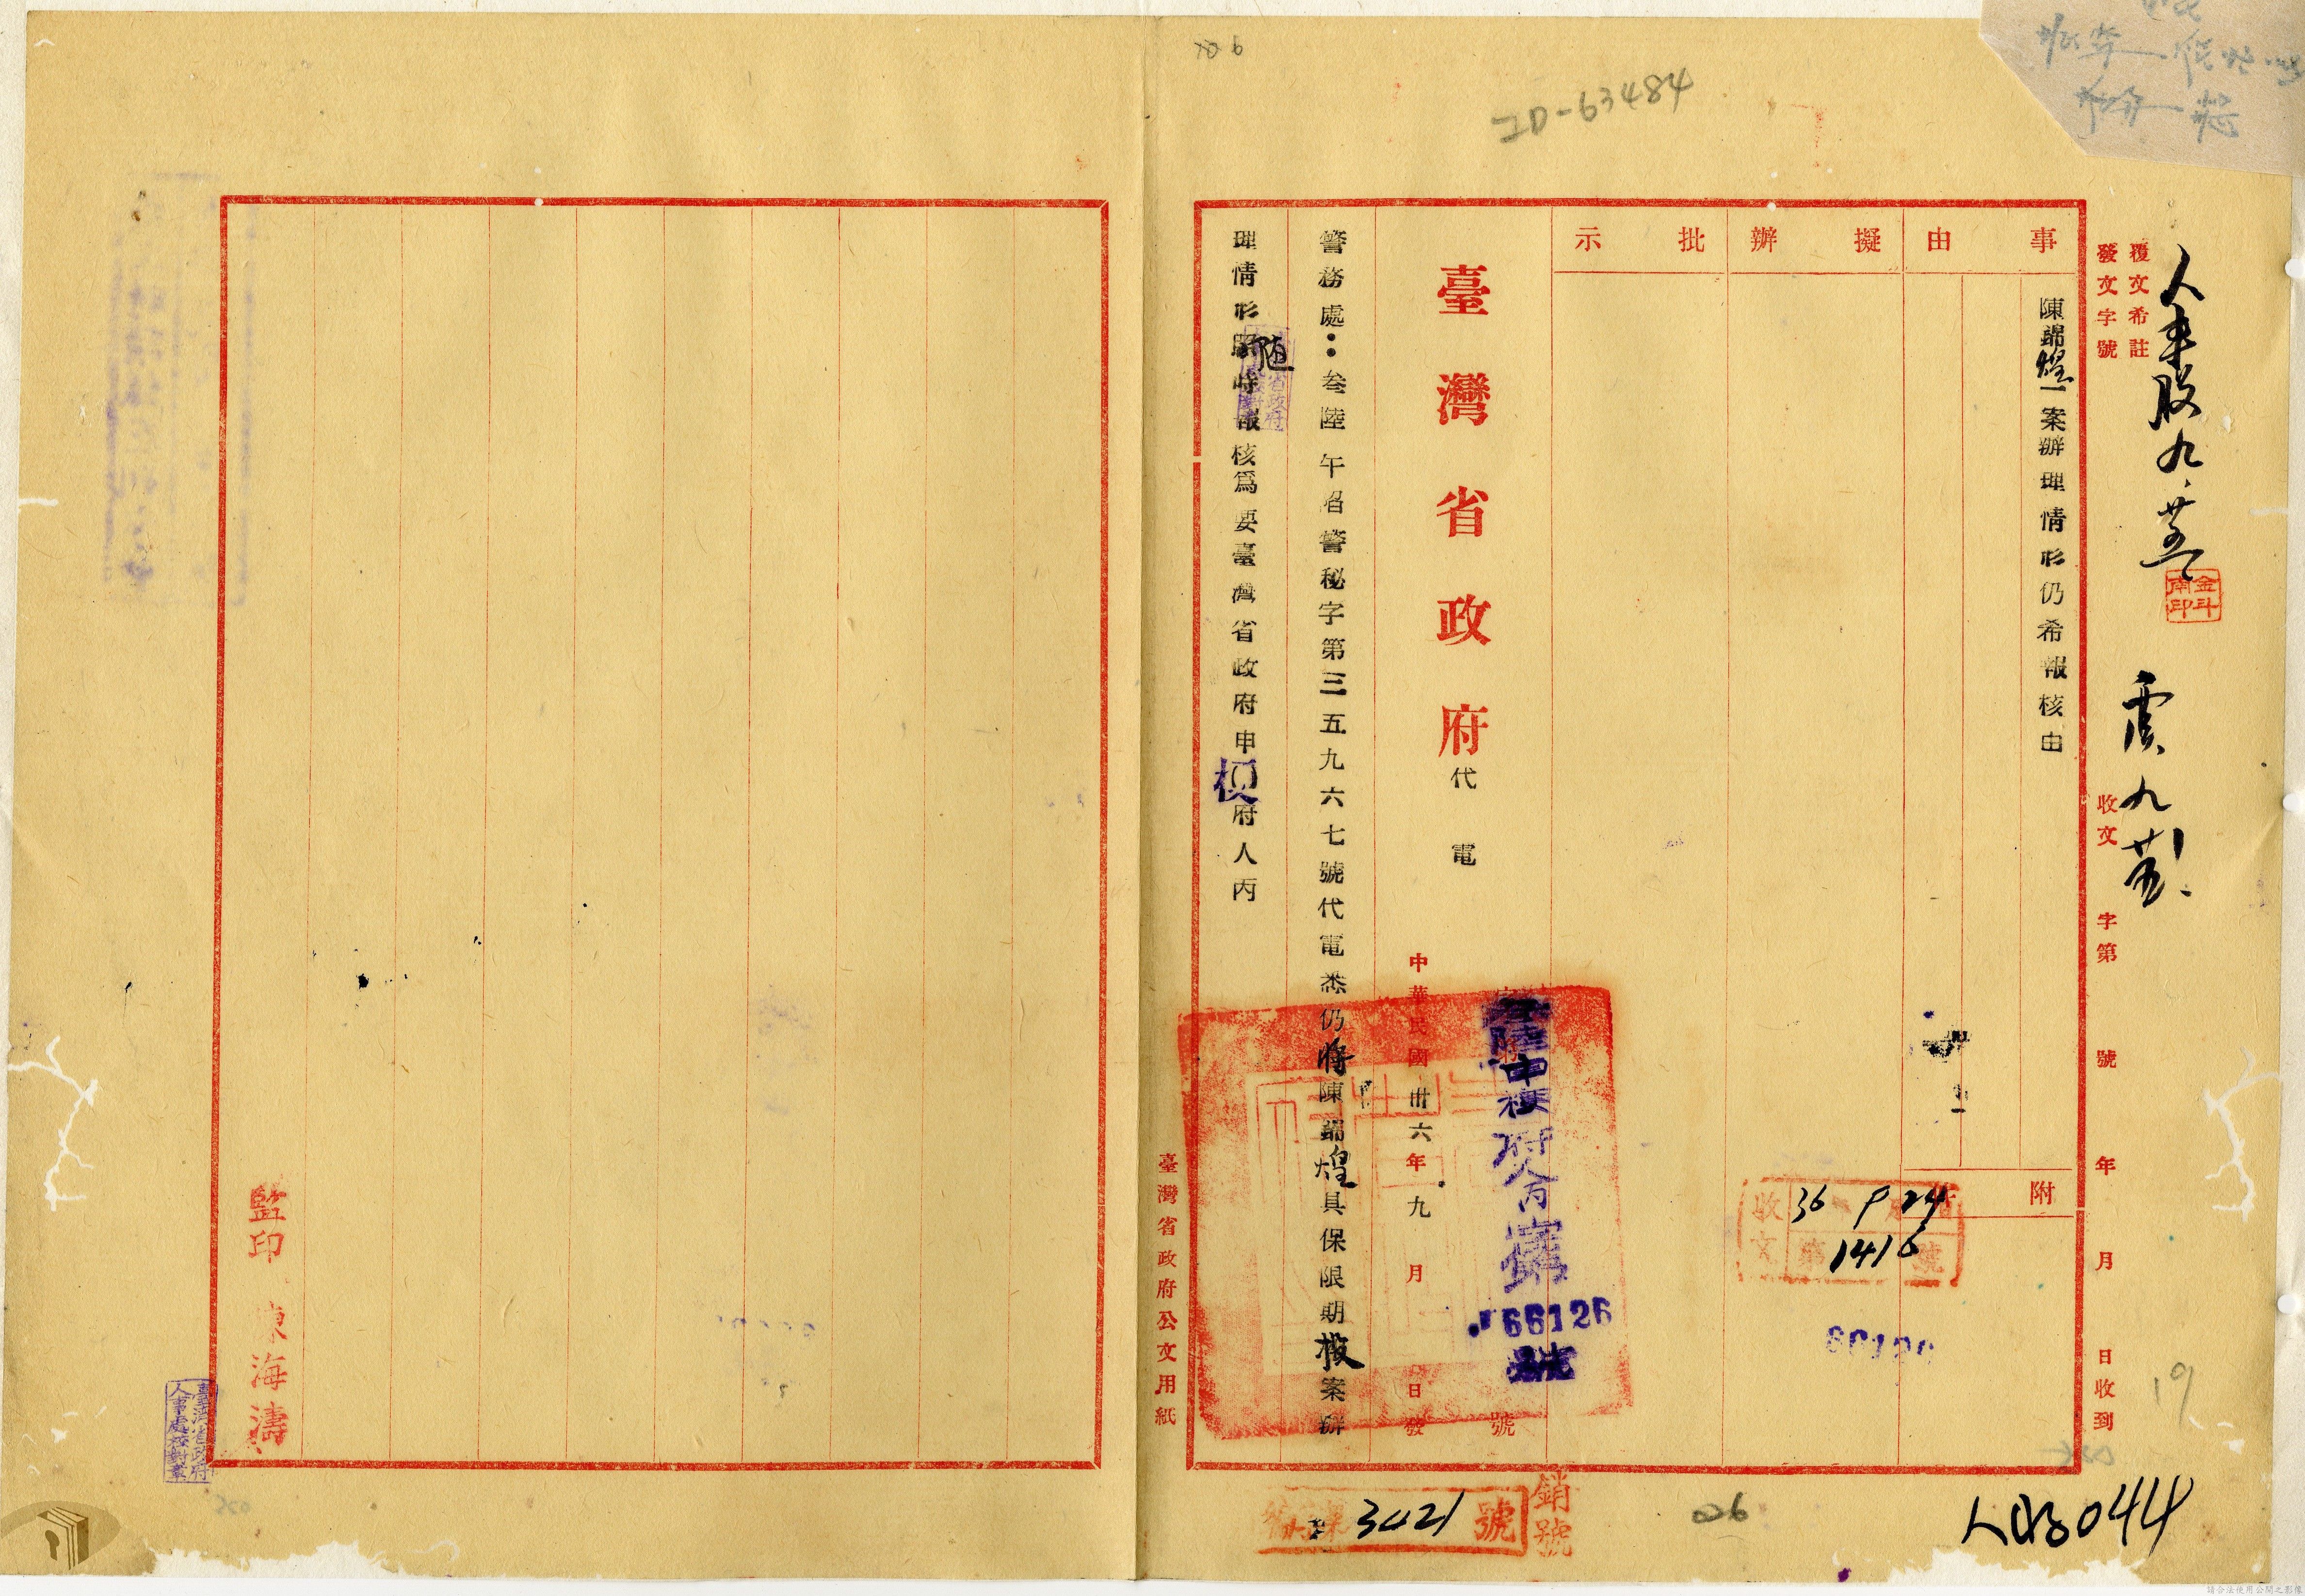 ID-63484
覆文希註
發文字號
收文 字第 號 年 月 日收到
事由
陳錦煌一案辦理情形仍希報核由
附件
擬辦
批示
臺灣省政府代電
中華民國卅六年九月 日發
陸申梗府人丙
66126
號
警務處：叁陸午佋警秘字第三五九六七號代電悉仍將陳錦煌具保限期報案辦
理情形隨時報核為要臺灣省政府申梗府人丙
臺灣省政府公文用紙
收文
36 9 24
第 1416 號
66126
金斗南印
3021 號
銷號
026
044
19
監印 陳海濤
臺灣省政府
人事處校對章
請合法使用公開之影像